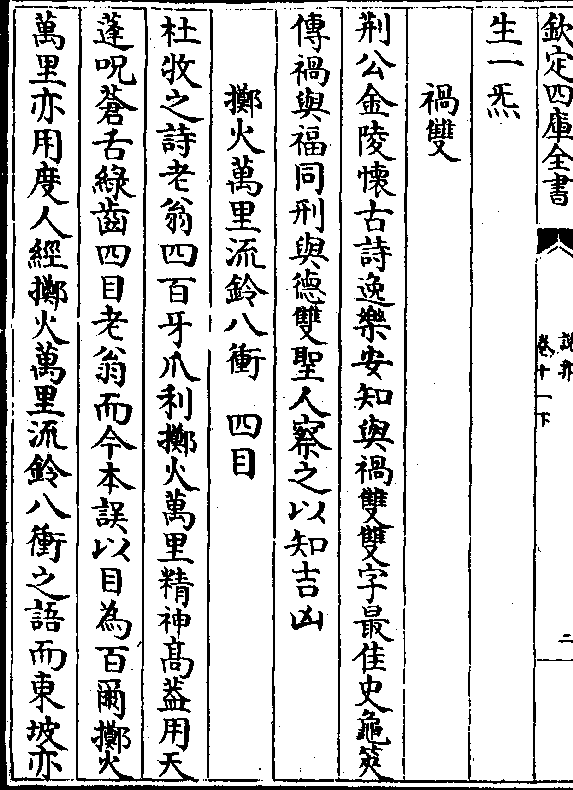 欽定四庫全書
說郛
卷十一下
二
生一炁
禍雙
荆公金陵懷古詩逸樂安知與禍雙雙字最佳史龜筴
傳禍與福同刑與德雙聖人察之以知吉凶
擲火萬里流鈴八衝　四目
杜牧之詩老翁四百牙爪利擲火萬里精神髙葢用天
蓬呪蒼舌綠齒四目老翁而今本誤以目為百爾擲火
萬里亦用度人經擲火萬里流鈴八衝之語而東坡亦